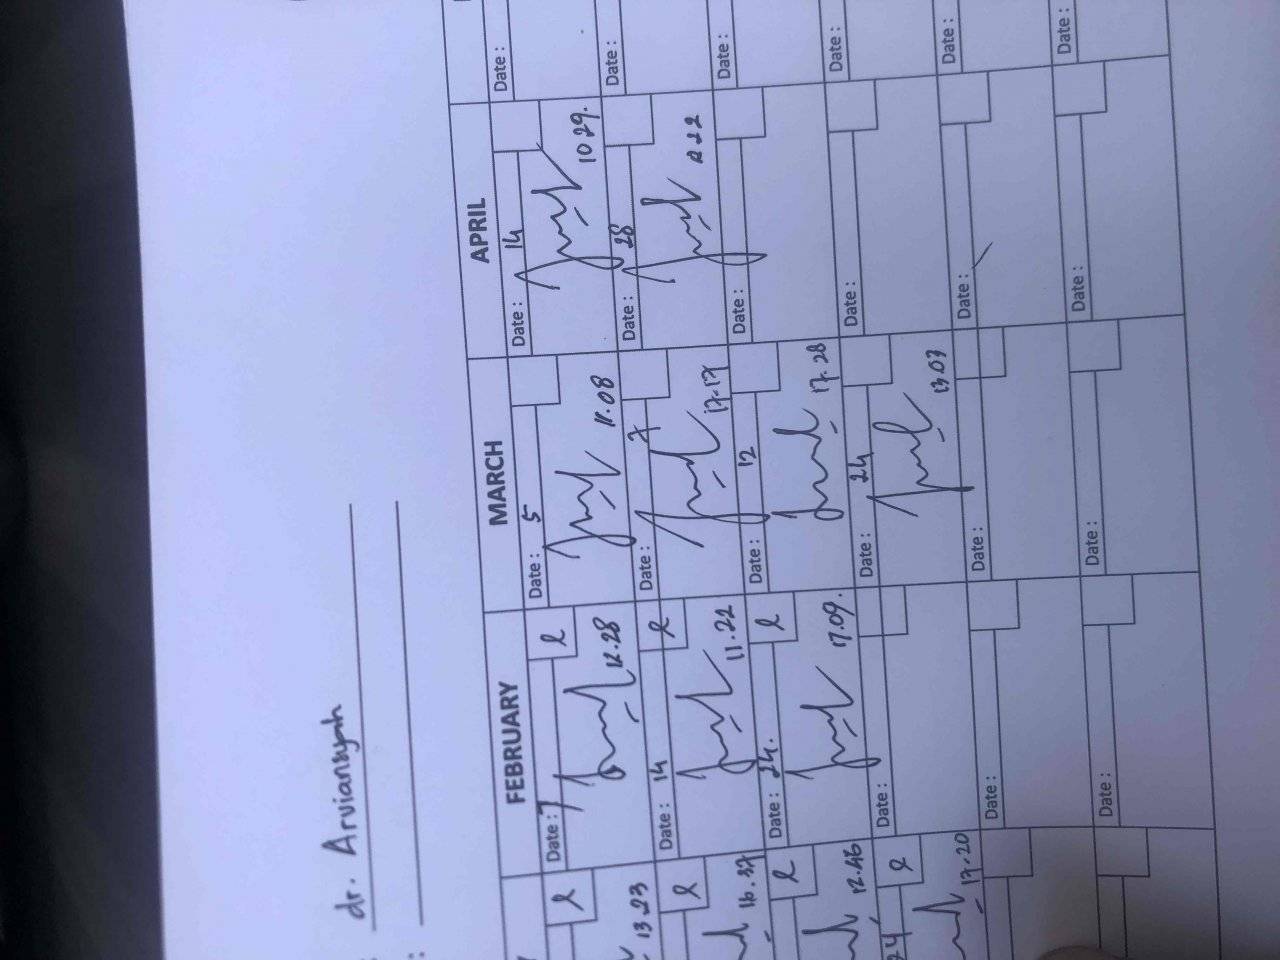 : dr. Arviansyah
:
FEBRUARY MARCH APRIL
Date: 7 l
12.28
Date: 5
11.08
Date: 14
10 29.
Date:
l
13.23
Date: 14 l
11.22
Date: 7
17.17
Date: 28
Date:
l
16.37
Date: 24. l
17.09.
Date: 12
17.28
Date:
Date:
l
12.46
Date:
Date: 24
13.03
Date:
Date:
24 l
17.20
Date:
Date:
Date:
Date:
Date:
Date:
Date:
Date: